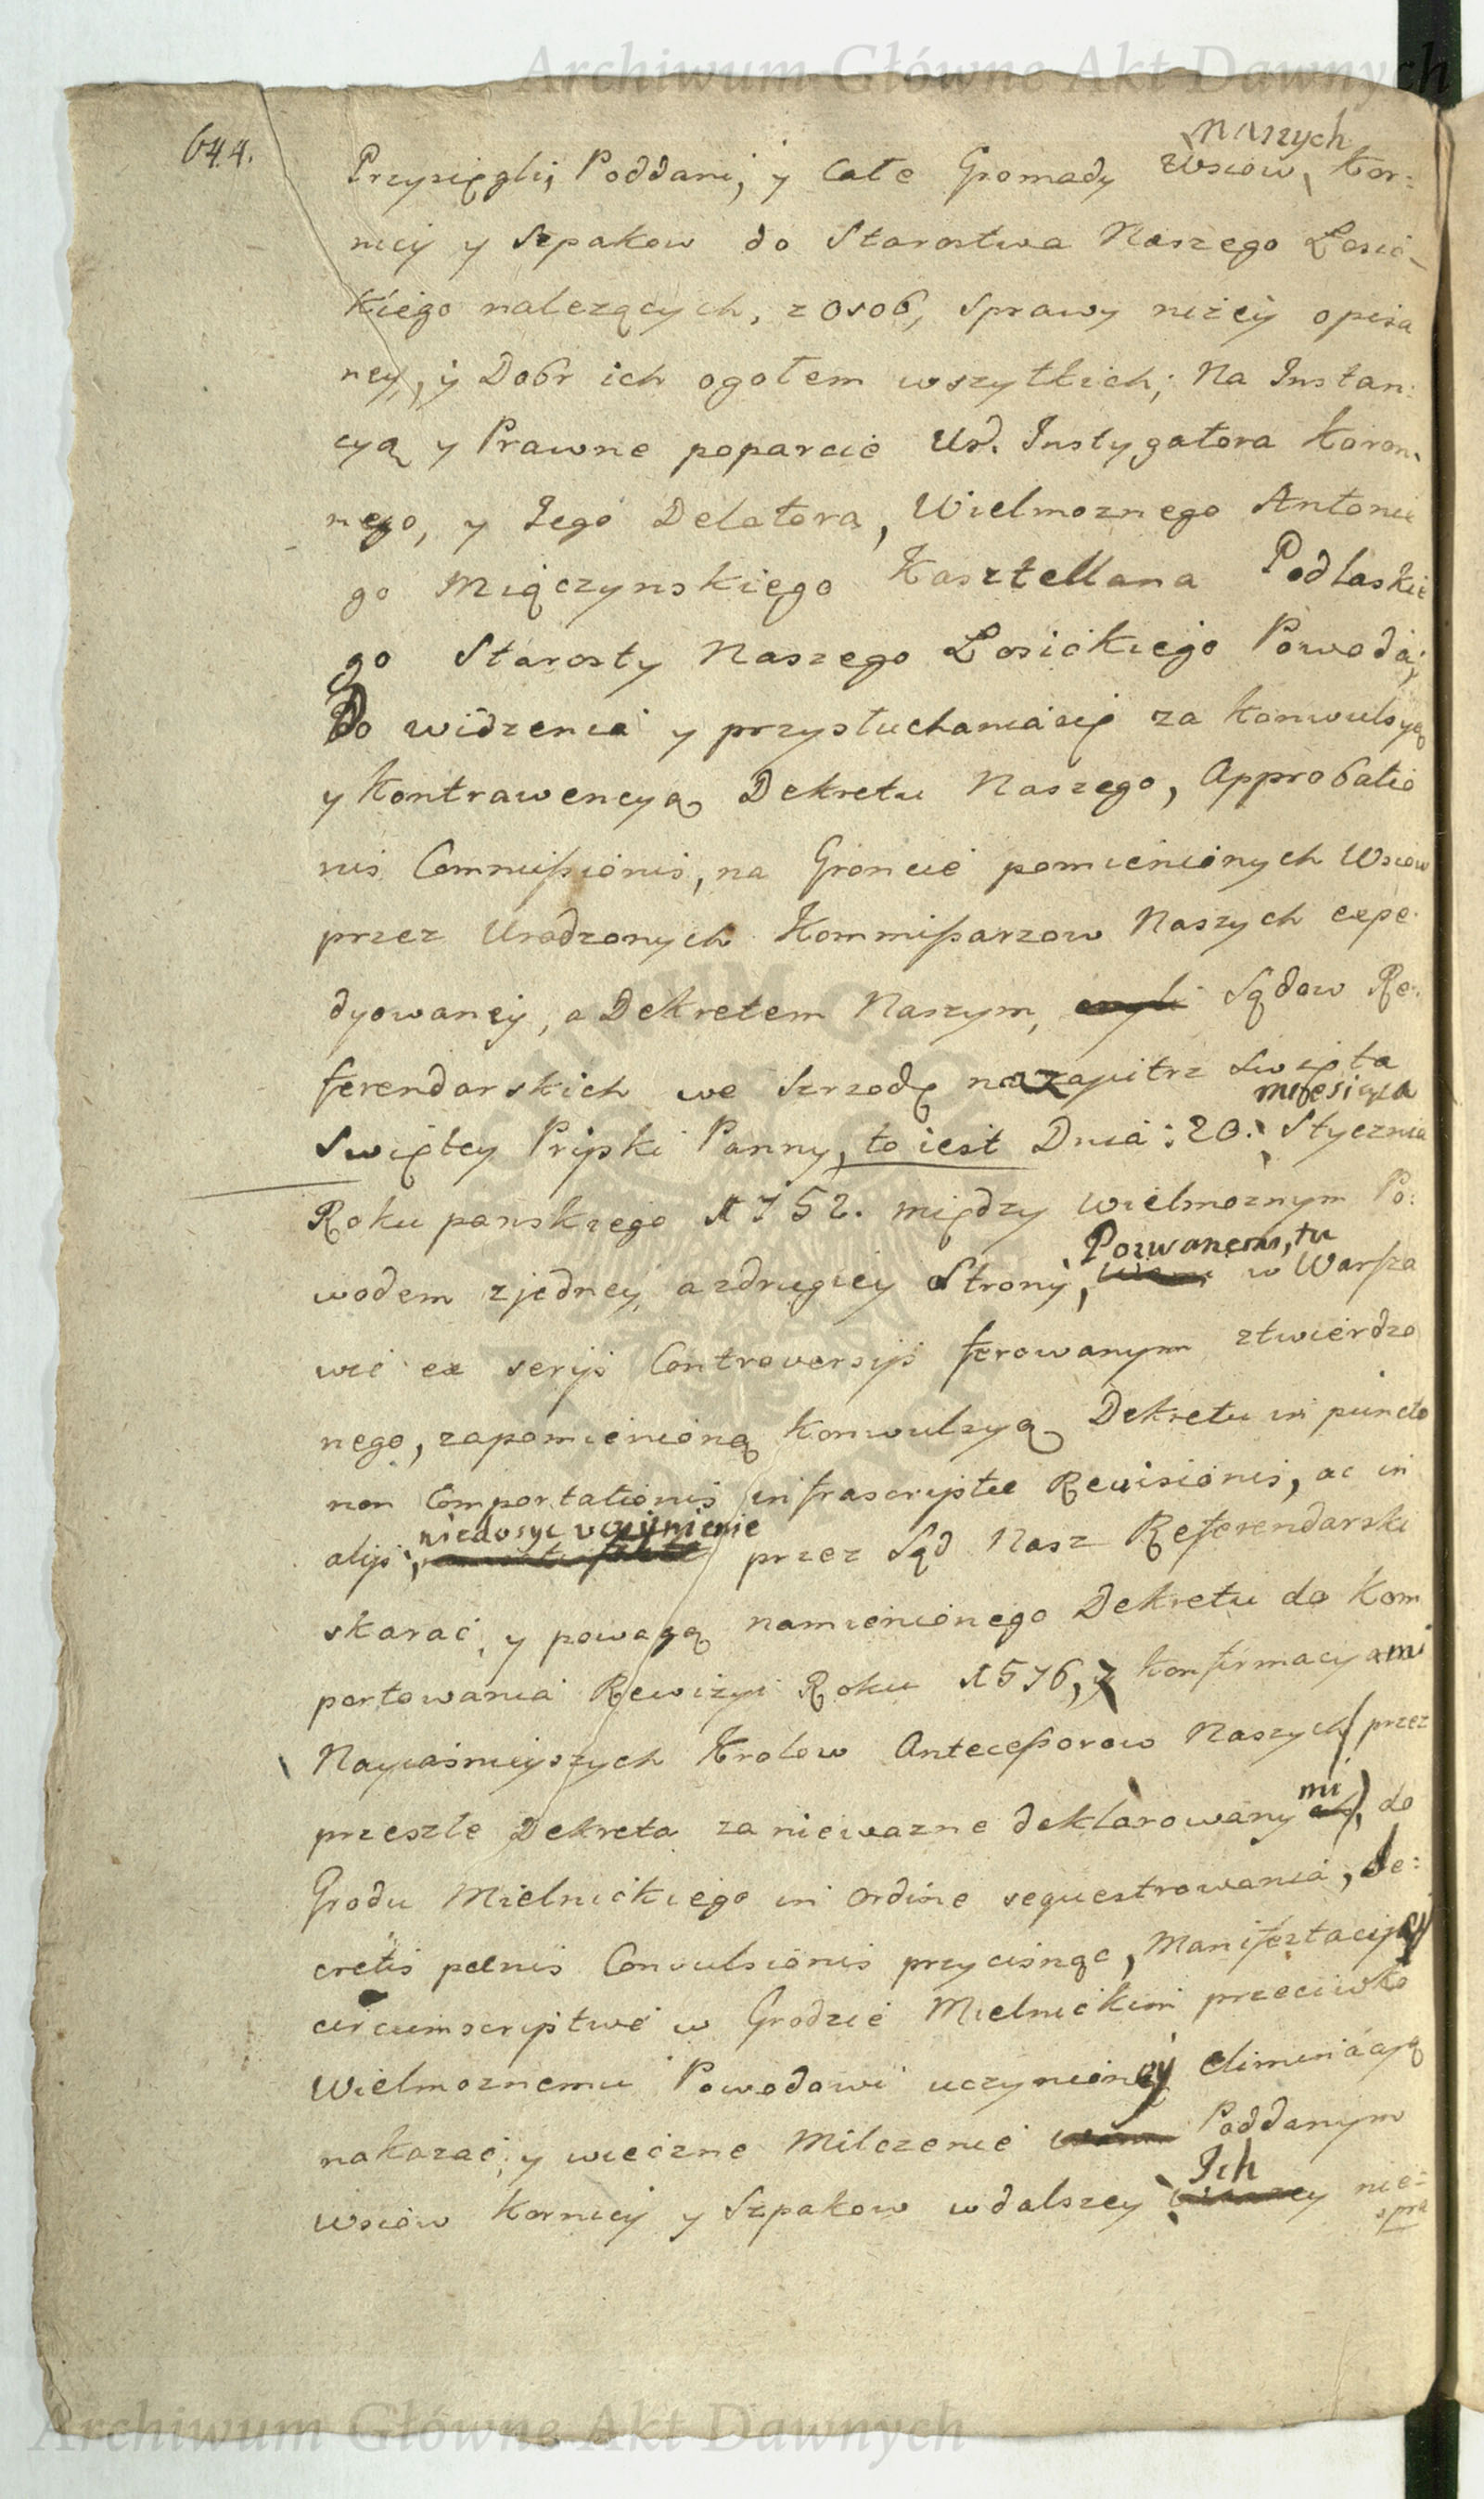 Archiwum Główne Akt Dawnych
644.
naszych
Przysięgli, Poddani, y całe Gromady Wsiow, Kor:
nicy y Szpakow do Starostwa Naszego Łosic-
kiego nalezących, z osob, sprawy niżey opisa
ney, y Dobr ich ogołem wszytkich; Na Instan:
cyą y Prawne poparcie Ur. Instygatora Koron-
nego, y Jego Delatora, Wielmoznego Antonie
go Miączynskiego Kasztellana Podlaskie
go Starosty Naszego Łosickiego Powoda;
Do widzenia y przysłuchania się za Konwulsyą
y Kontrawencyą Dekretu Naszego, Approbatio
nis Commissionis, na Gróncie pomienionych Wsiow
przez Urodzonych Kommissarzow Naszych expe-
dyowaney, a Dekretem Naszym, Sądow Re:
ferendarskich we Srzodę nazajutrz Swięta
miesiąca
Swiętey Pryski Panny, to iest Dnia: 20. Stycznia
Roku panskiego 1752. między Wielmoznym Po:
Pozwanemi, tu
wodem z jedney, a zdrugiey Strony, w Warsza
wie ex serys Controversys ferowanym ztwierdzo
nego, zapomienioną Konwulsyą Dekretu in puncto
non Comportationis infrascriptae Revisionis, ac in
niedosyc uczynienie
alys, przez Sąd Nasz Referendarski
skarać, y powagą namienionego Dekretu do Kom
portowania Rewizyi Roku 1576, z Konfirmacyami
Nayiasnieyszych Krolow Antecessorow Naszych (przez
mi
przeszłe Dekreta za niewazne deklarowany), do
Grodu Mielnickiego in ordine sequestrowania, de:
cretis paenis Convulsionis przycisnąc, Manifestacyi
circumscriptive w Grodzie Mielnickim przeciwko
Wielmoznemu Powodowi uczynioney eliminacyą
nakazać; y wieczne Milczenie Poddanym
Ich
Wsiow Kornicy y Szpakow wdalszey nie-
spra
Archiwum Główne Akt Dawnych